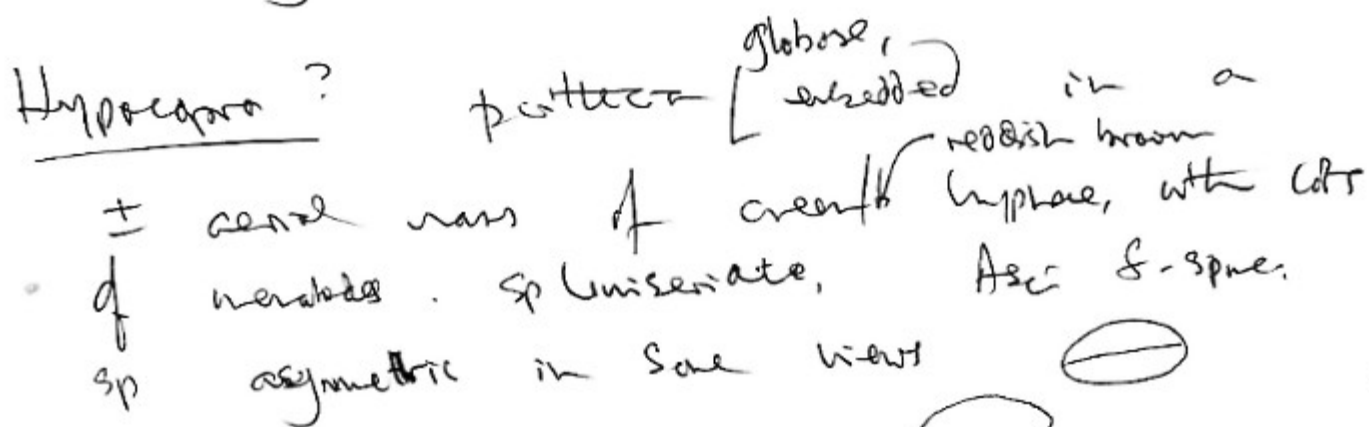 Hypocopra? perithecia [globose, embedded in a
± aerial mass of creamy / reddish brown hyphae, with lots
of nematodes. sp uniseriate, Asci 8-spore.
sp asymmetric in some views